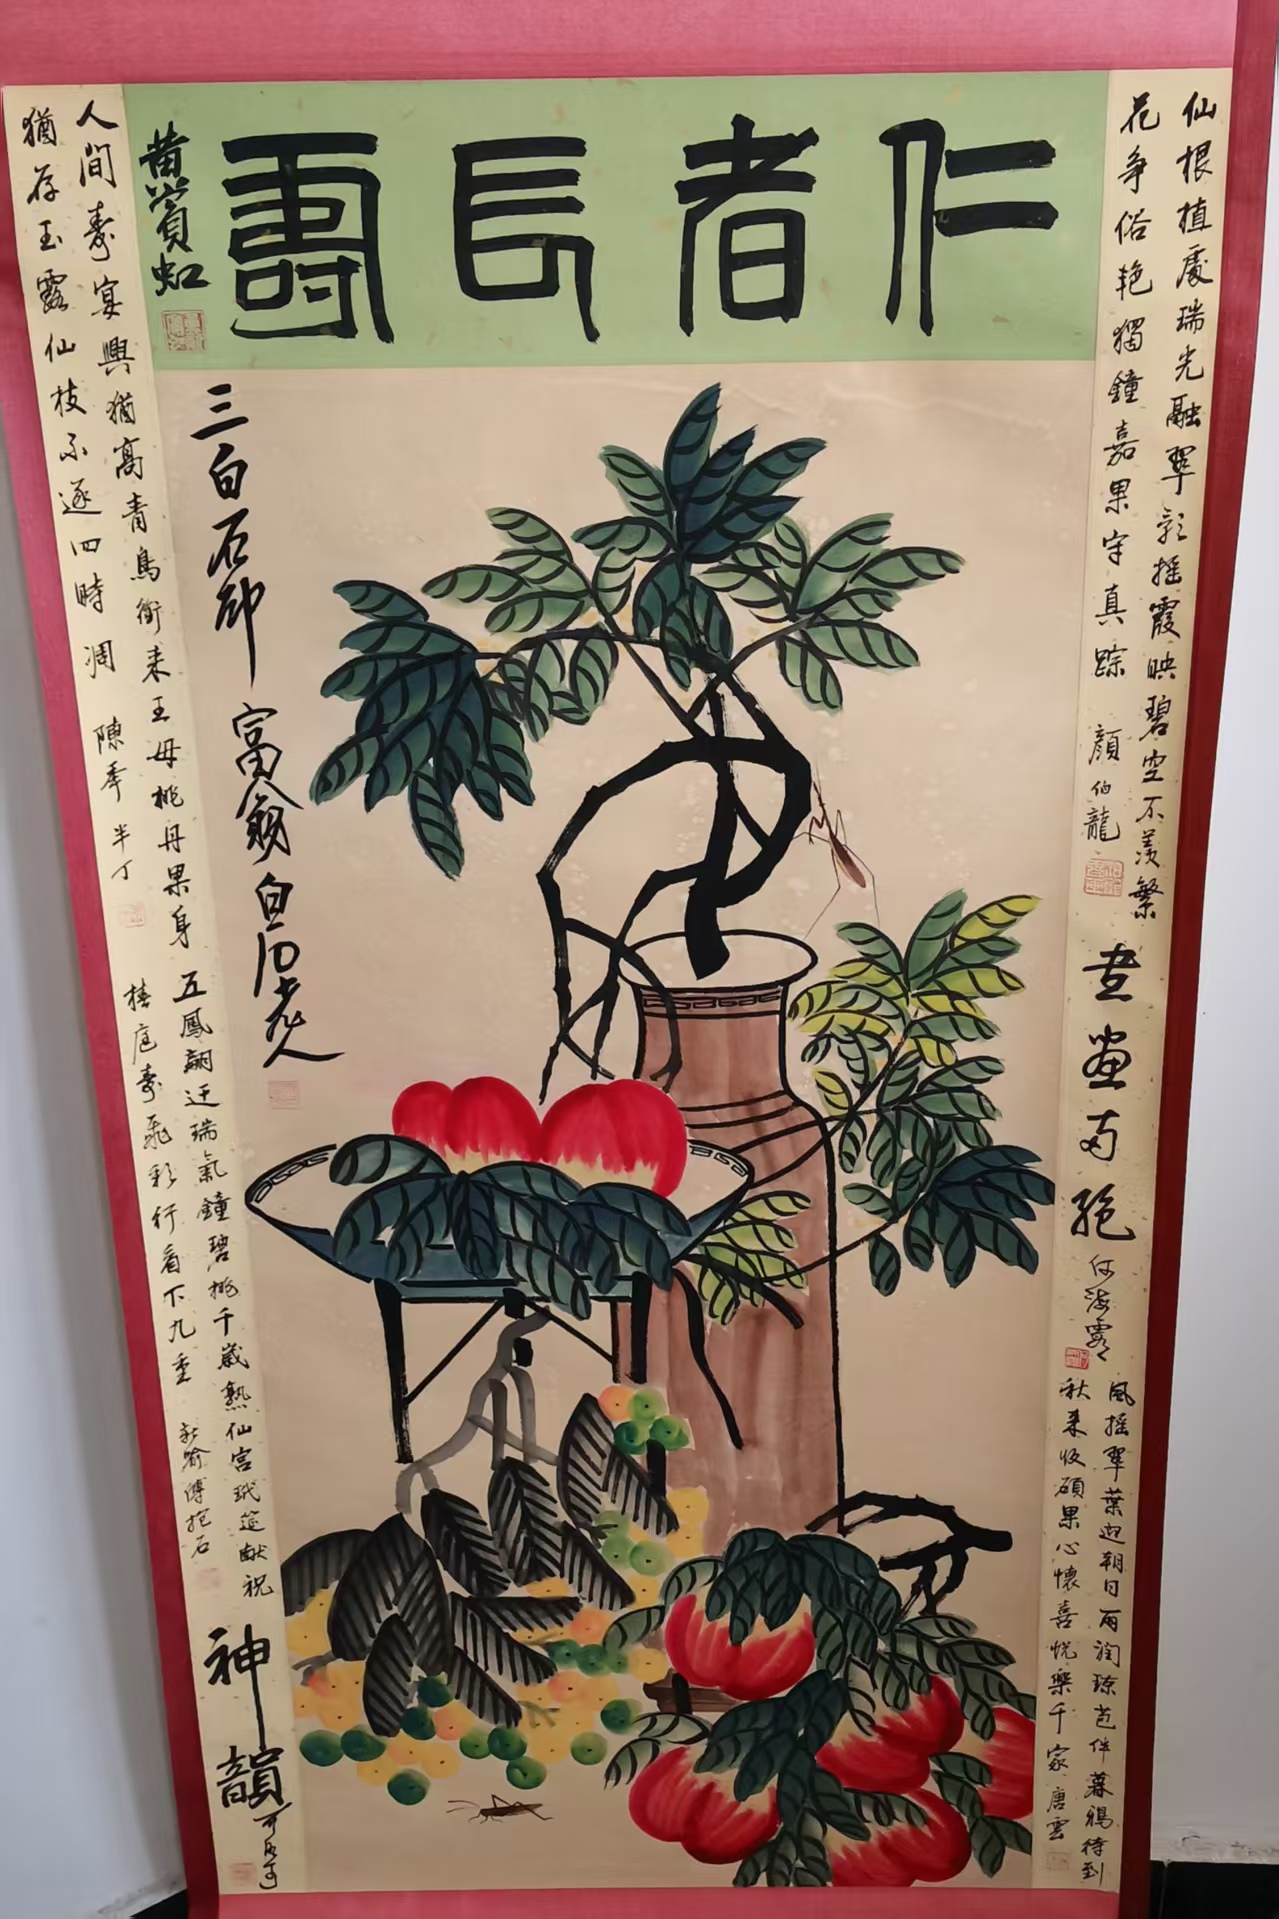 仁者長壽
黄賓虹
仙根植處瑞光融翠影摇霞映碧空不羡繁
花争俗艳獨鐘嘉果守真踪
顏伯龍
書畫雨絕
何海霞
風摇翠葉迎朝日雨潤瓊芭伴暮鴉待到
秋来收碩果心懷喜悦樂千家 唐雲
三百石印
富翁白石老人
人間壽宴興猶高青鳥銜来王母桃丹果身
猶存玉露仙枝不逐四時凋
陳年半丁
五鳳翩迁瑞氣鐘碧桃千歲熟仙宫玳筵献祝
椿庭壽飛彩行看下九重
新喻傅抱石
神韻